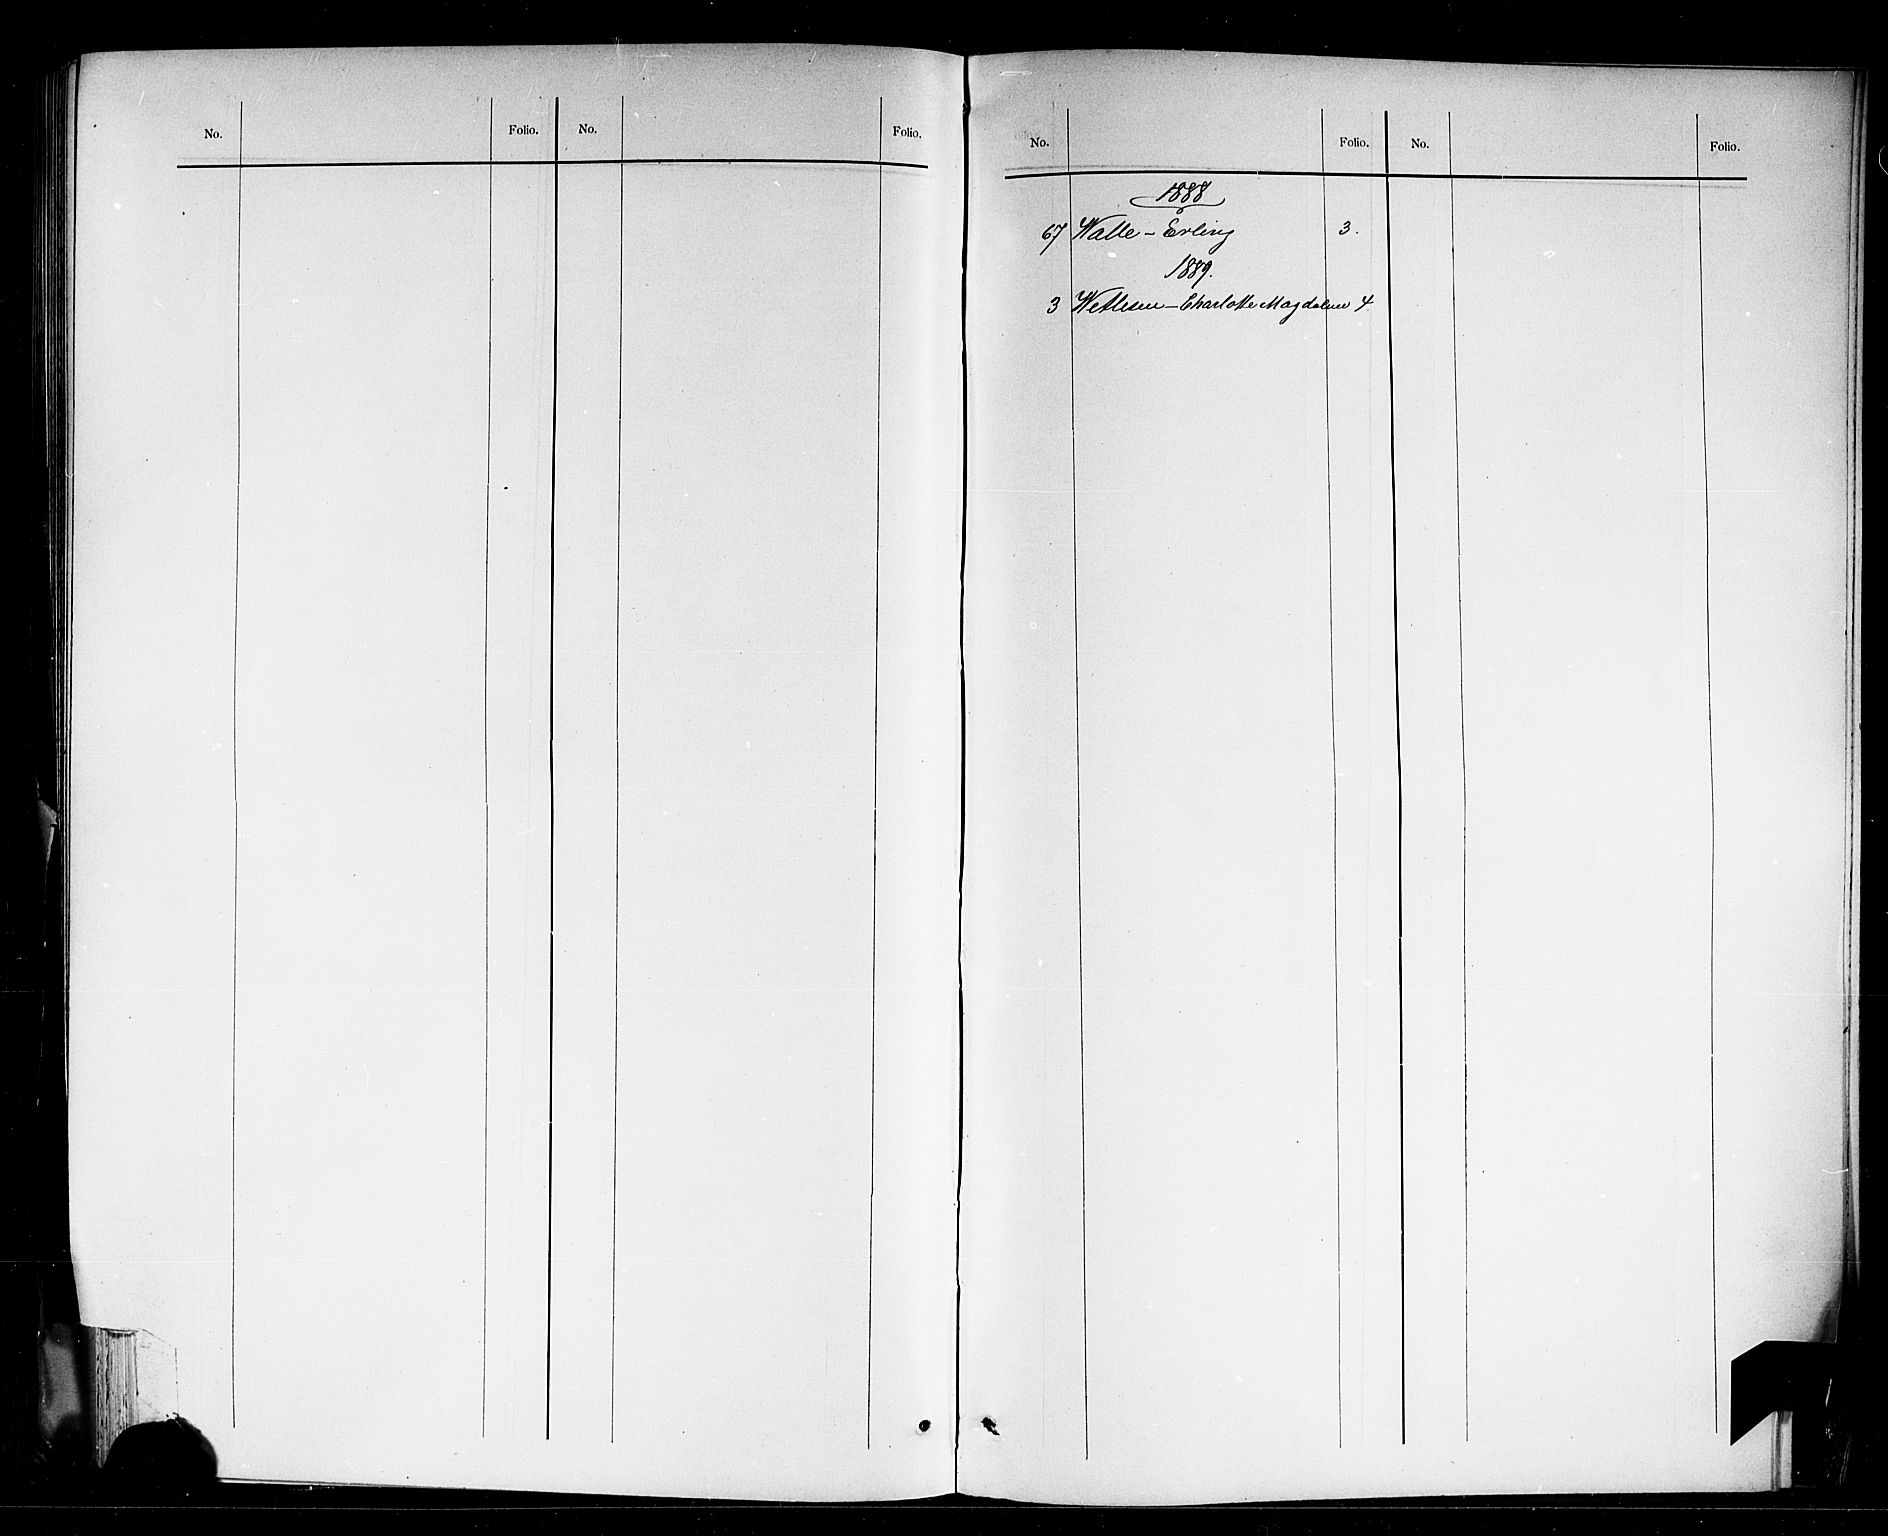 No. Folio. No. Folio.
No. Folio. No. Folio.
1888
67 Walle - Erling 3.
1889.
3 Wetlesen - Charlotte Magdalene 4.